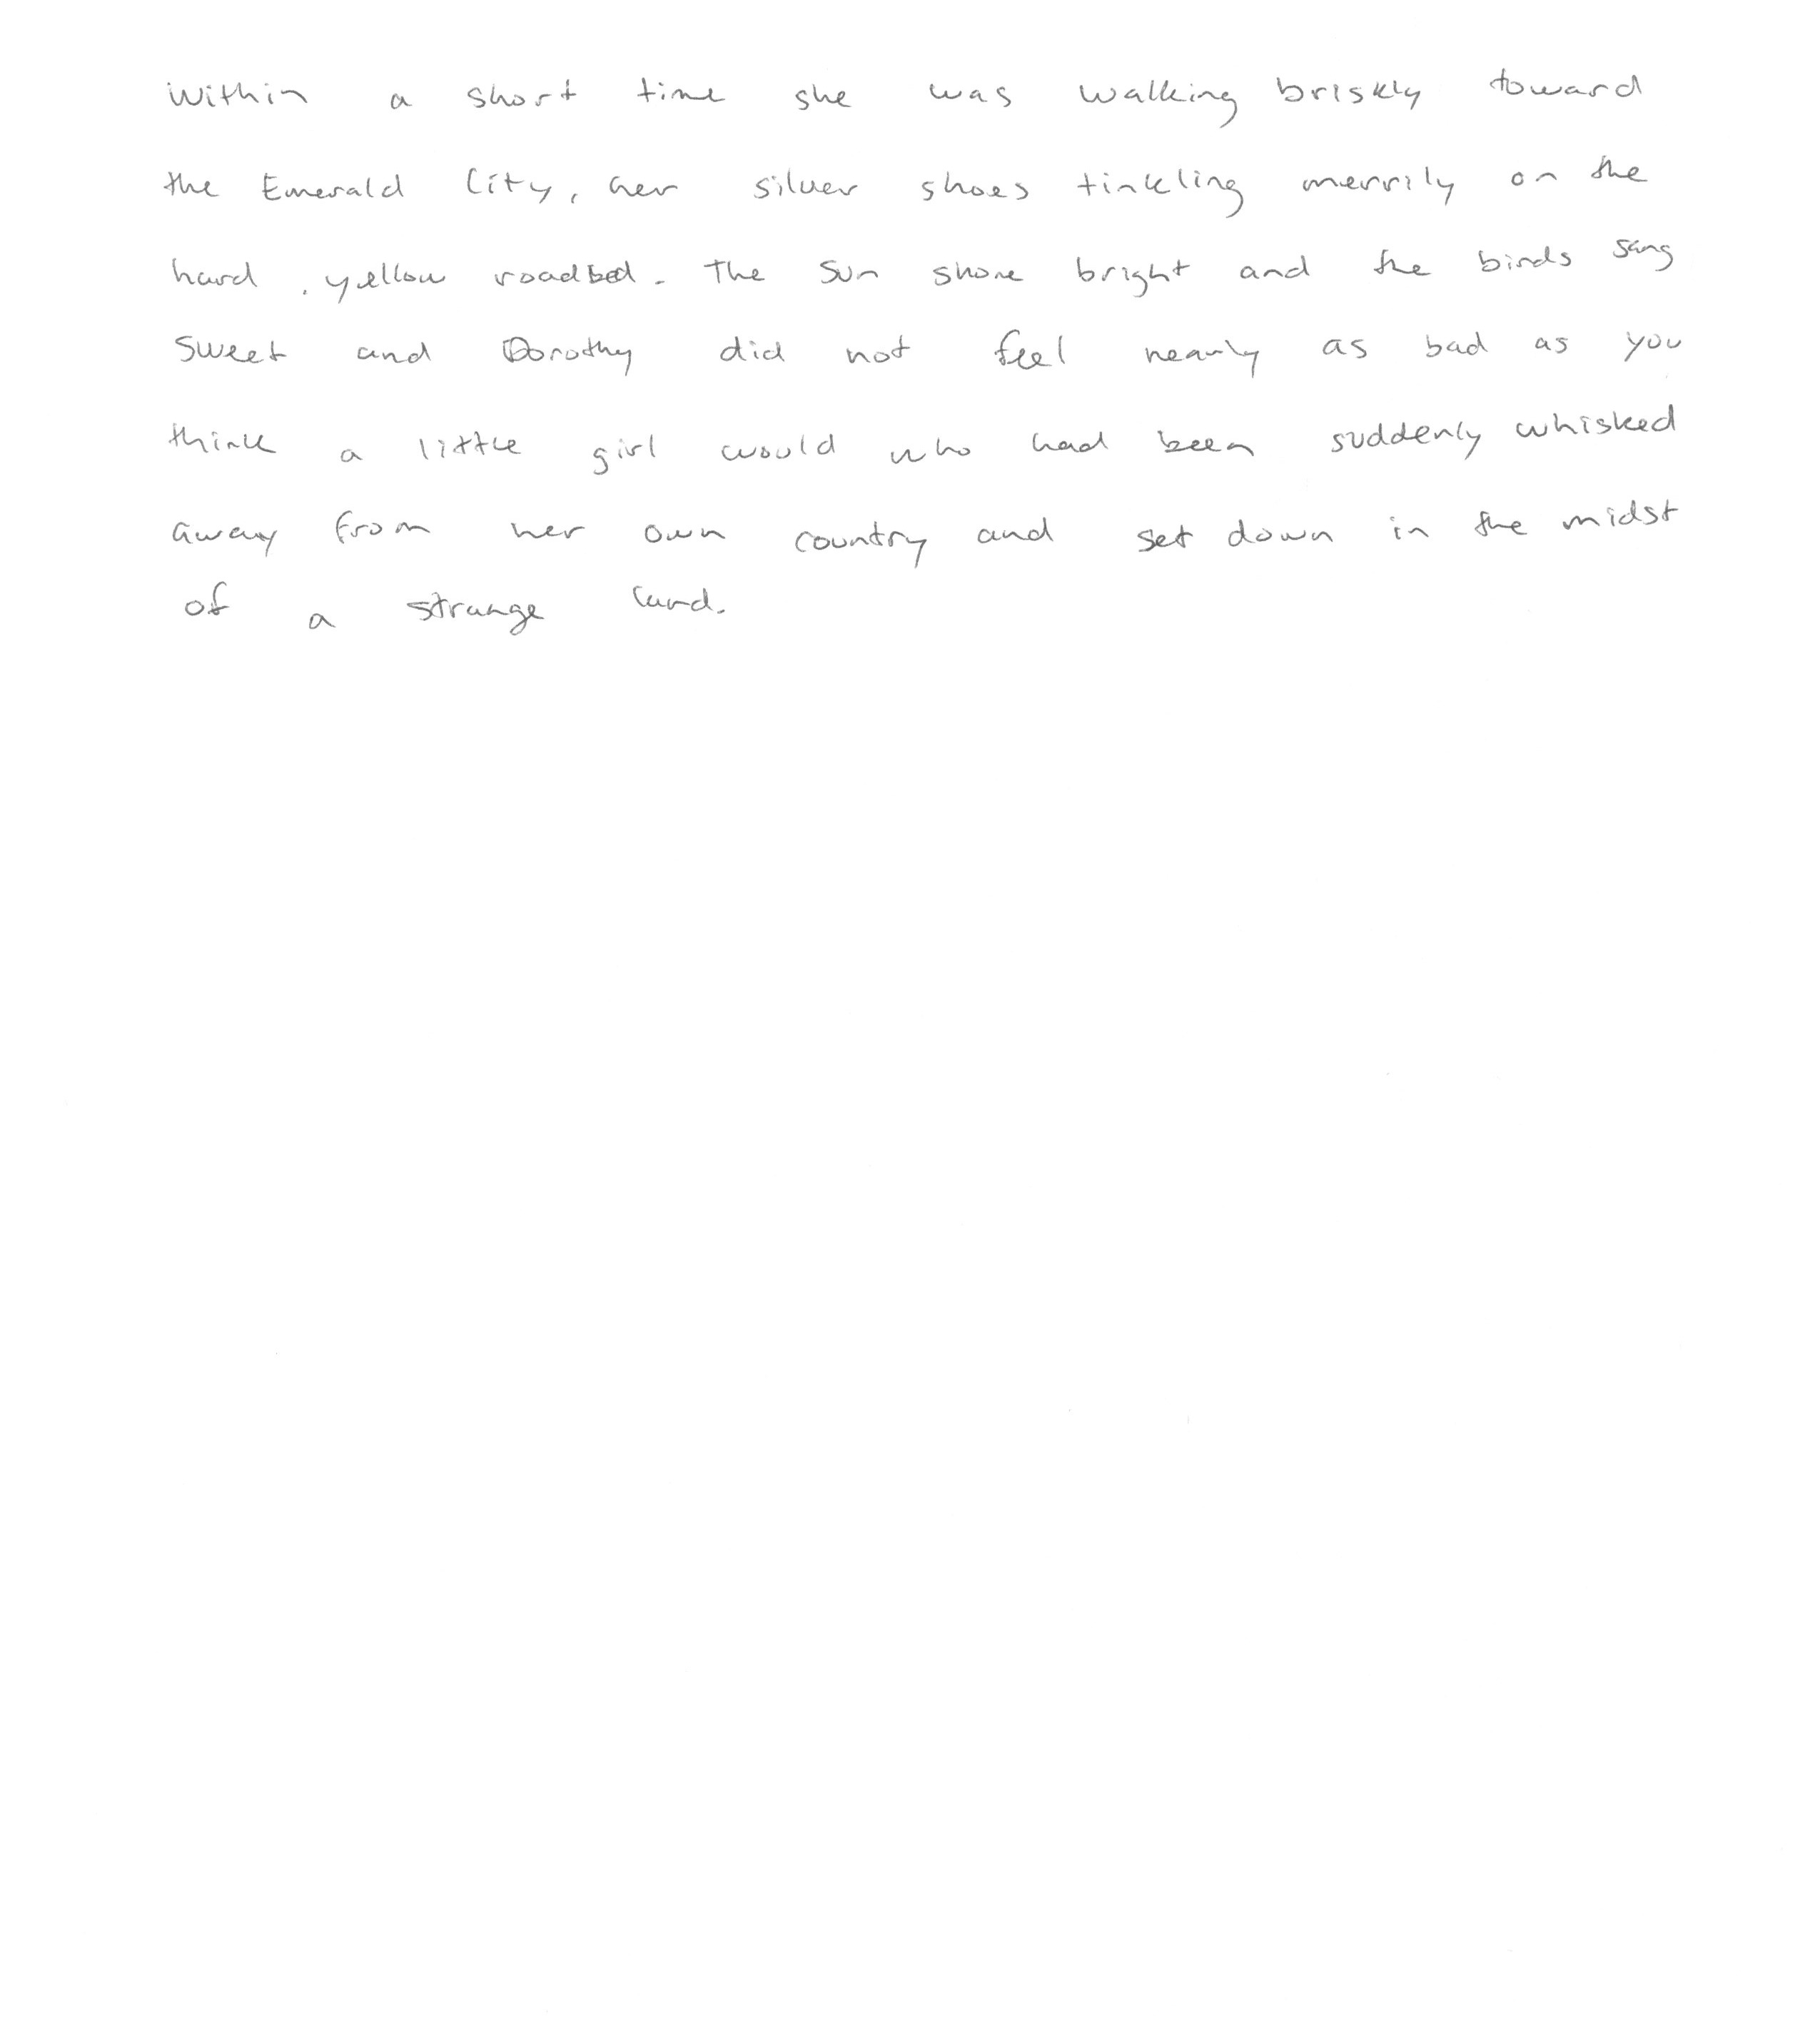 Within a short time she was walking briskly toward
the Emerald City, her silver shoes tinkling merrily on the
hard, yellow roadbed. The sun shone bright and the birds sang
sweet and Dorothy did not feel nearly as bad as you
think a little girl would who had been suddenly whisked
away from her own country and set down in the midst
of a strange land.